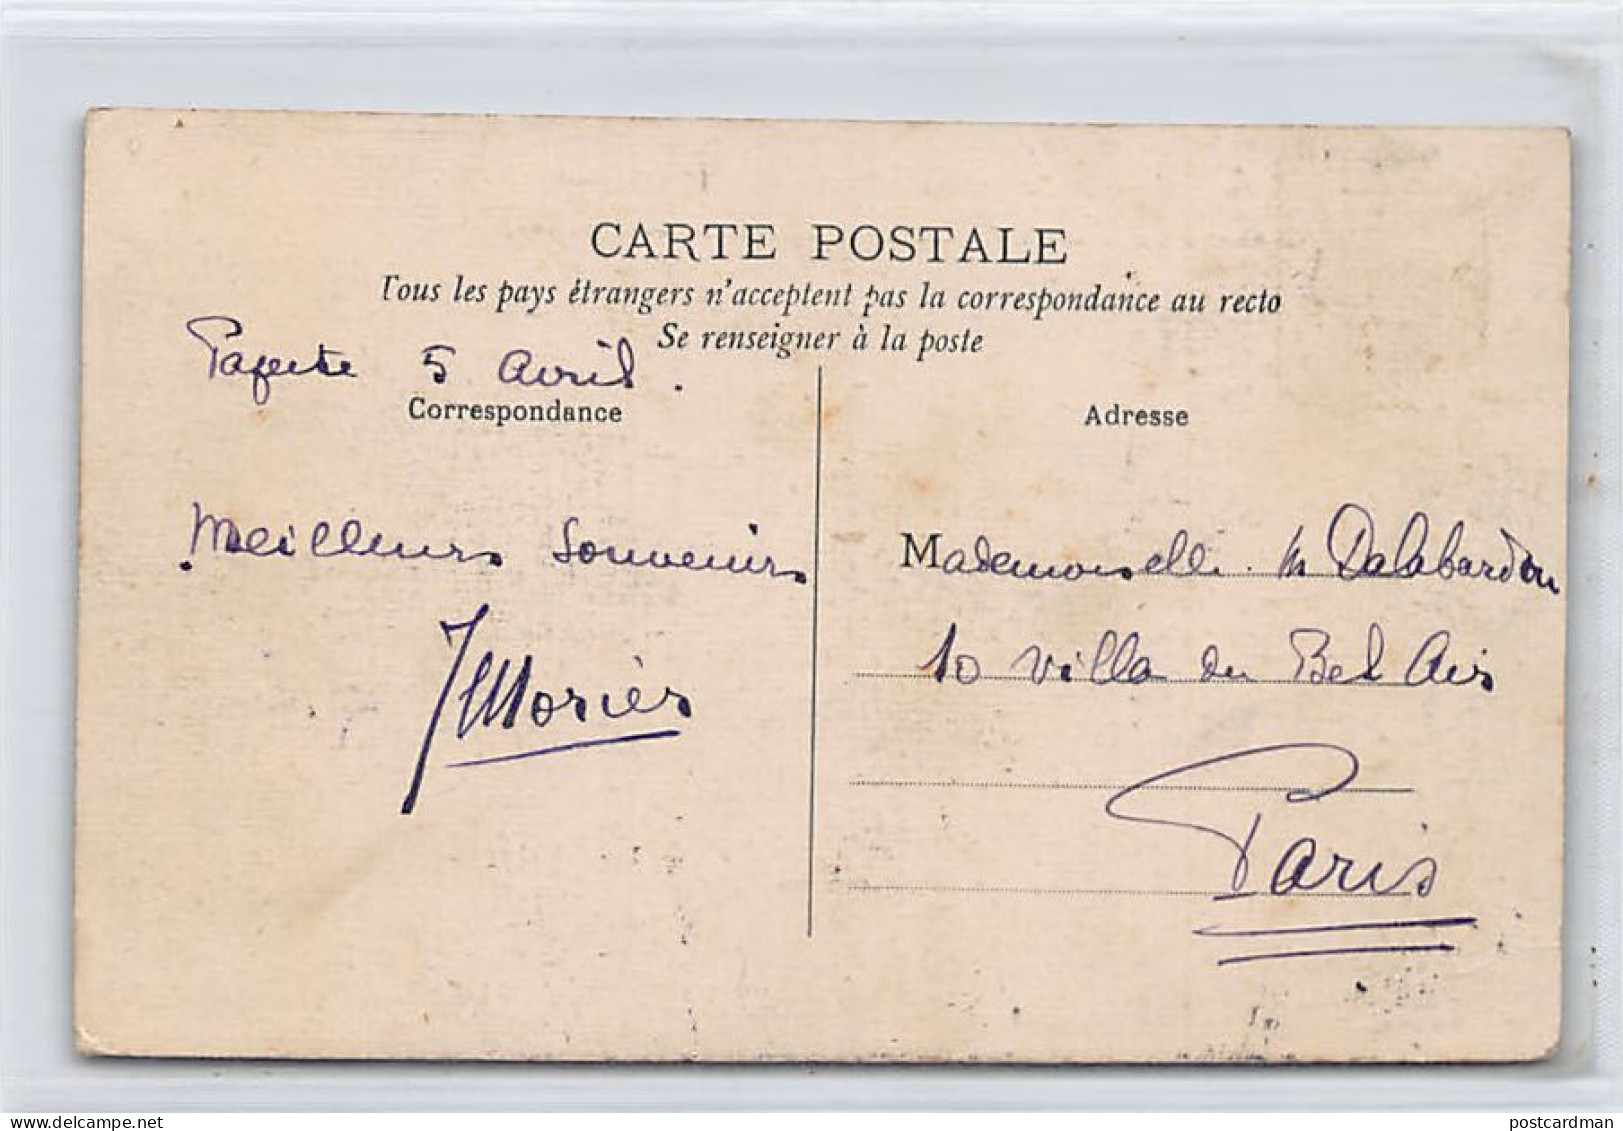 CARTE POSTALE
Tous les pays étrangers n'acceptent pas la correspondance au recto
Se renseigner à la poste
5 Avril.
Correspondance
Adresse
Meilleurs Souvenirs
Mademoiselle. M Dalabardon
10 villa du Bel Air
Paris
postcardman